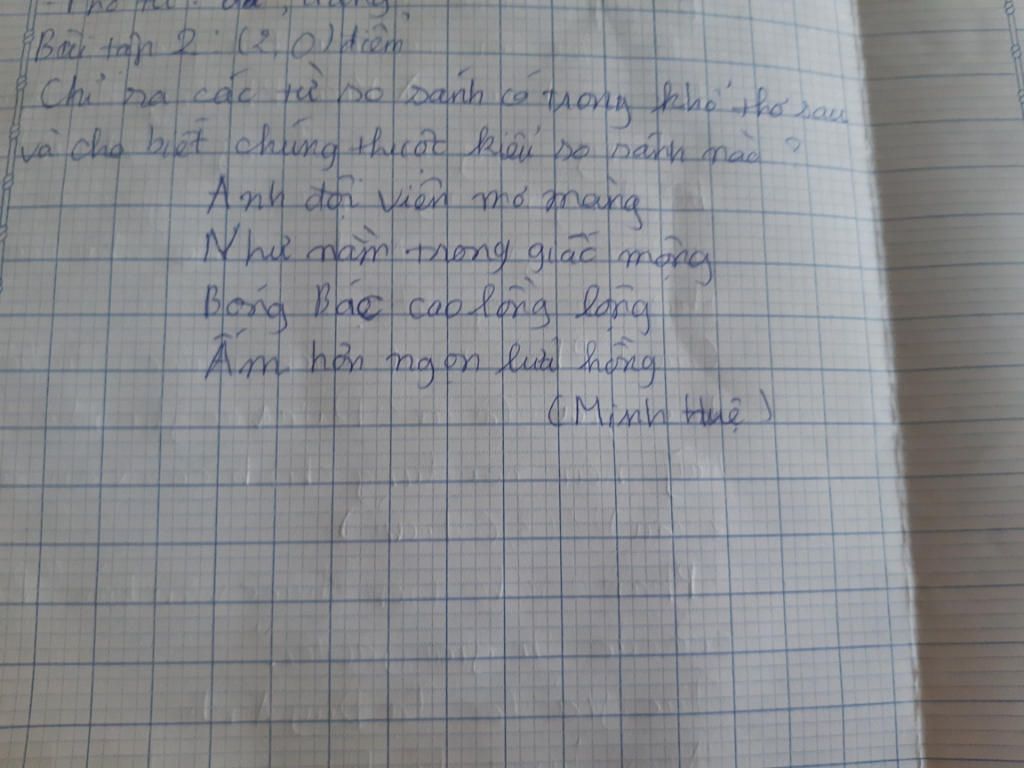 Bài tập 2: (2,0) điểm
Chỉ ra các từ so sánh có trong khổ thơ sau
và cho biết chúng thuộc kiểu so sánh nào?
Anh đội viên mơ màng
Như nằm trong giấc mộng
Bóng Bác cao lồng lộng
Ấm hơn ngọn lửa hồng
(Minh Huệ)